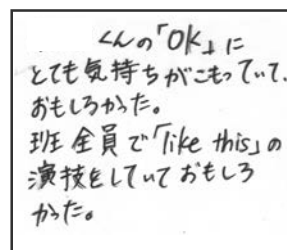 くんの「OK」に
とても気持ちがこもっていて、
おもしろかった。
班全員で「like this」の
演技をしていておもしろ
かった。